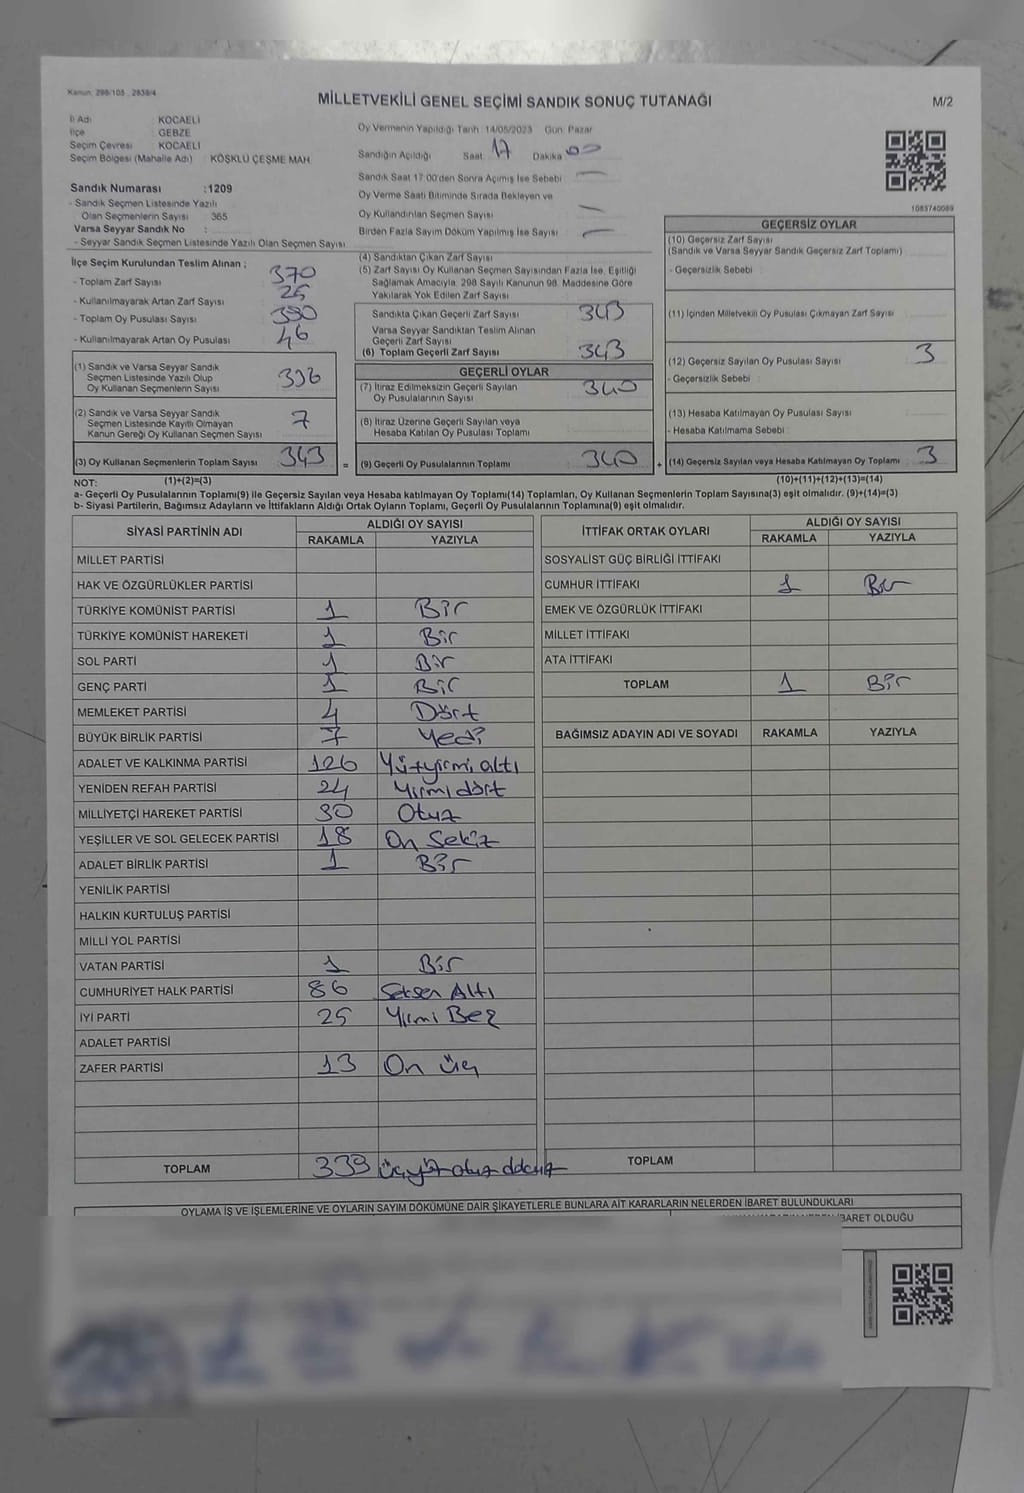 Kanun: 298/105 2839/4
MİLLETVEKİLİ GENEL SEÇİMİ SANDIK SONUÇ TUTANAĞI
M/2
İl Adı KOCAELİ
İlçe GEBZE
Seçim Çevresi KOCAELİ
Seçim Bölgesi (Mahalle Adı) KÖŞKLÜ ÇEŞME MAH
Sandık Numarası :1209
- Sandık Seçmen Listesinde Yazılı
Olan Seçmenlerin Sayısı 365
Varsa Seyyar Sandık No :
- Seyyar Sandık Seçmen Listesinde Yazılı Olan Seçmen Sayısı
Oy Vermenin Yapıldığı Tarih 14/05/2023 Gün: Pazar
Sandığın Açıldığı Saat 17 Dakika 00
Sandık Saat 17:00'den Sonra Açılmış İse Sebebi
Oy Verme Saati Bitiminde Sırada Bekleyen ve
Oy Kullandırılan Seçmen Sayısı
Birden Fazla Sayım Döküm Yapılmış İse Sayısı
1083740089
İlçe Seçim Kurulundan Teslim Alınan ;
- Toplam Zarf Sayısı 370
- Kullanılmayarak Artan Zarf Sayısı
- Toplam Oy Pusulası Sayısı 390
- Kullanılmayarak Artan Oy Pusulası 46
(1) Sandık ve Varsa Seyyar Sandık
Seçmen Listesinde Yazılı Olup
Oy Kullanan Seçmenlerin Sayısı 336
(2) Sandık ve Varsa Seyyar Sandık
Seçmen Listesinde Kayıtlı Olmayan
Kanun Gereği Oy Kullanan Seçmen Sayısı 7
(3) Oy Kullanan Seçmenlerin Toplam Sayısı 343 =
(1)+(2)=(3)
(4) Sandıktan Çıkan Zarf Sayısı
(5) Zarf Sayısı Oy Kullanan Seçmen Sayısından Fazla İse, Eşitliği
Sağlamak Amacıyla, 298 Sayılı Kanunun 98. Maddesine Göre
Yakılarak Yok Edilen Zarf Sayısı
Sandıkta Çıkan Geçerli Zarf Sayısı 343
Varsa Seyyar Sandıktan Teslim Alınan
Geçerli Zarf Sayısı
(6) Toplam Geçerli Zarf Sayısı 343
GEÇERLİ OYLAR
(7) İtiraz Edilmeksizin Geçerli Sayılan
Oy Pusulalarının Sayısı 340
(8) İtiraz Üzerine Geçerli Sayılan veya
Hesaba Katılan Oy Pusulası Toplamı
(9) Geçerli Oy Pusulalarının Toplamı 340 +
GEÇERSİZ OYLAR
(10) Geçersiz Zarf Sayısı
(Sandık ve Varsa Seyyar Sandık Geçersiz Zarf Toplamı)
- Geçersizlik Sebebi
(11) İçinden Milletvekili Oy Pusulası Çıkmayan Zarf Sayısı
(12) Geçersiz Sayılan Oy Pusulası Sayısı 3
- Geçersizlik Sebebi :
(13) Hesaba Katılmayan Oy Pusulası Sayısı
- Hesaba Katılmama Sebebi :
(14) Geçersiz Sayılan veya Hesaba Katılmayan Oy Toplamı 3
(10)+(11)+(12)+(13)=(14)
NOT:
a- Geçerli Oy Pusulalarının Toplamı(9) ile Geçersiz Sayılan veya Hesaba katılmayan Oy Toplamı(14) Toplamları, Oy Kullanan Seçmenlerin Toplam Sayısına(3) eşit olmalıdır. (9)+(14)=(3)
b- Siyasi Partilerin, Bağımsız Adayların ve İttifakların Aldığı Ortak Oyların Toplamı, Geçerli Oy Pusulalarının Toplamına(9) eşit olmalıdır.
SİYASİ PARTİNİN ADI
ALDIĞI OY SAYISI
RAKAMLA YAZIYLA
MİLLET PARTİSİ
HAK VE ÖZGÜRLÜKLER PARTİSİ
TÜRKİYE KOMÜNİST PARTİSİ 1 Bir
TÜRKİYE KOMÜNİST HAREKETİ 1 Bir
SOL PARTİ 1 Bir
GENÇ PARTİ 1 Bir
MEMLEKET PARTİSİ 4 Dört
BÜYÜK BİRLİK PARTİSİ 7 Yedi
ADALET VE KALKINMA PARTİSİ 126 Yüzyirmi altı
YENİDEN REFAH PARTİSİ 24 Yirmi dört
MİLLİYETÇİ HAREKET PARTİSİ 30 Otuz
YEŞİLLER VE SOL GELECEK PARTİSİ 18 On Sekiz
ADALET BİRLİK PARTİSİ 1 Bir
YENİLİK PARTİSİ
HALKIN KURTULUŞ PARTİSİ
MİLLİ YOL PARTİSİ
VATAN PARTİSİ 1 Bir
CUMHURİYET HALK PARTİSİ 86 Seksen Altı
İYİ PARTİ 25 Yirmi Beş
ADALET PARTİSİ
ZAFER PARTİSİ 13 On üç
TOPLAM 339 üçyüz otuz dokuz
İTTİFAK ORTAK OYLARI
ALDIĞI OY SAYISI
RAKAMLA YAZIYLA
SOSYALİST GÜÇ BİRLİĞİ İTTİFAKI
CUMHUR İTTİFAKI 1 Bir
EMEK VE ÖZGÜRLÜK İTTİFAKI
MİLLET İTTİFAKI
ATA İTTİFAKI
TOPLAM 1 Bir
BAĞIMSIZ ADAYIN ADI VE SOYADI RAKAMLA YAZIYLA
TOPLAM
OYLAMA İŞ VE İŞLEMLERİNE VE OYLARIN SAYIM DÖKÜMÜNE DAİR ŞİKAYETLERLE BUNLARA AİT KARARLARIN NELERDEN İBARET BULUNDUKLARI
BARET OLDUĞU